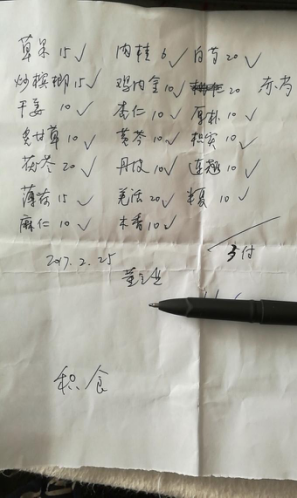 草果 15 ✓ 肉桂 6 ✓ 白芍 20 ✓
炒槟榔 15 ✓ 鸡内金 10 ✓ 20 赤芍
干姜 10 ✓ 杏仁 10 ✓ 厚朴 10 ✓
炙甘草 10 ✓ 黄芩 10 ✓ 枳实 10 ✓
茯苓 20 ✓ 丹皮 10 ✓ 连翘 10 ✓
薄荷 15 ✓ 羌活 20 ✓ 半夏 10 ✓
麻仁 10 ✓ 木香 10 ✓
3付
2017.2.25
积食